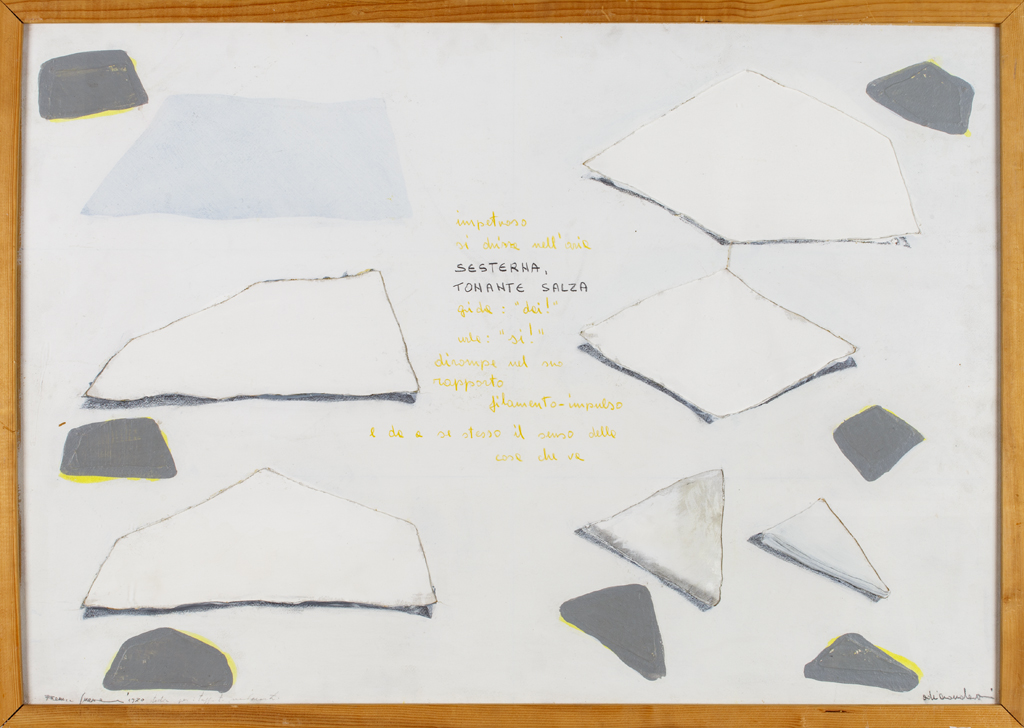 impetuoso
si drizza nell'aria
SESTERNA,
TONANTE SALZA
gida : "dei!"
urla : "si!"
dirompe nel suo
rapporto
filamento-impulso
e da a se stesso il senso della
cosa che va